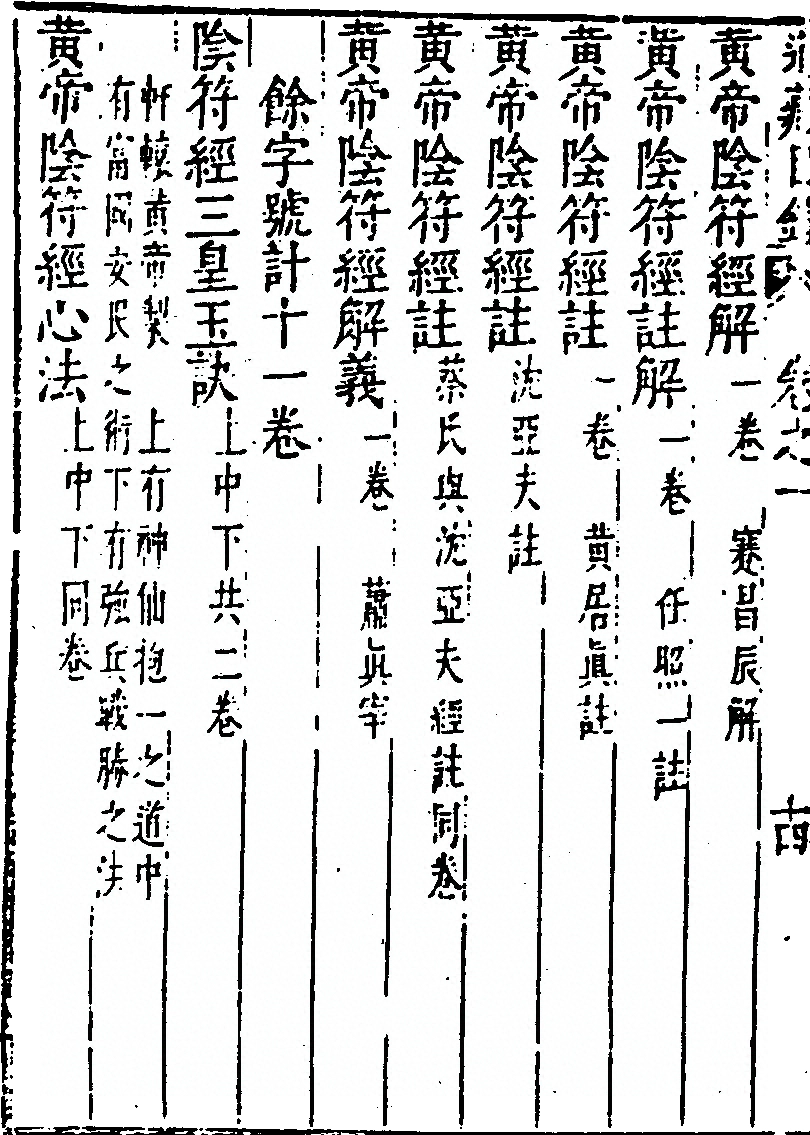 道藏目錄 卷之一 十四
黃帝陰符經解 一卷 蹇昌辰解
黃帝陰符經註解 一卷 任照一註
黃帝陰符經註 一卷 黃居眞註
黃帝陰符經註 沈亞夫註
黃帝陰符經註 蔡氏與沈亞夫經註同卷
黃帝陰符經解義 一卷 蕭眞宰
餘字號計十一卷
陰符經三皇玉訣 上中下共二卷
軒轅黃帝製 上有神仙抱一之道中
有富國安民之術下有強兵戰勝之法
黃帝陰符經心法 上中下同卷